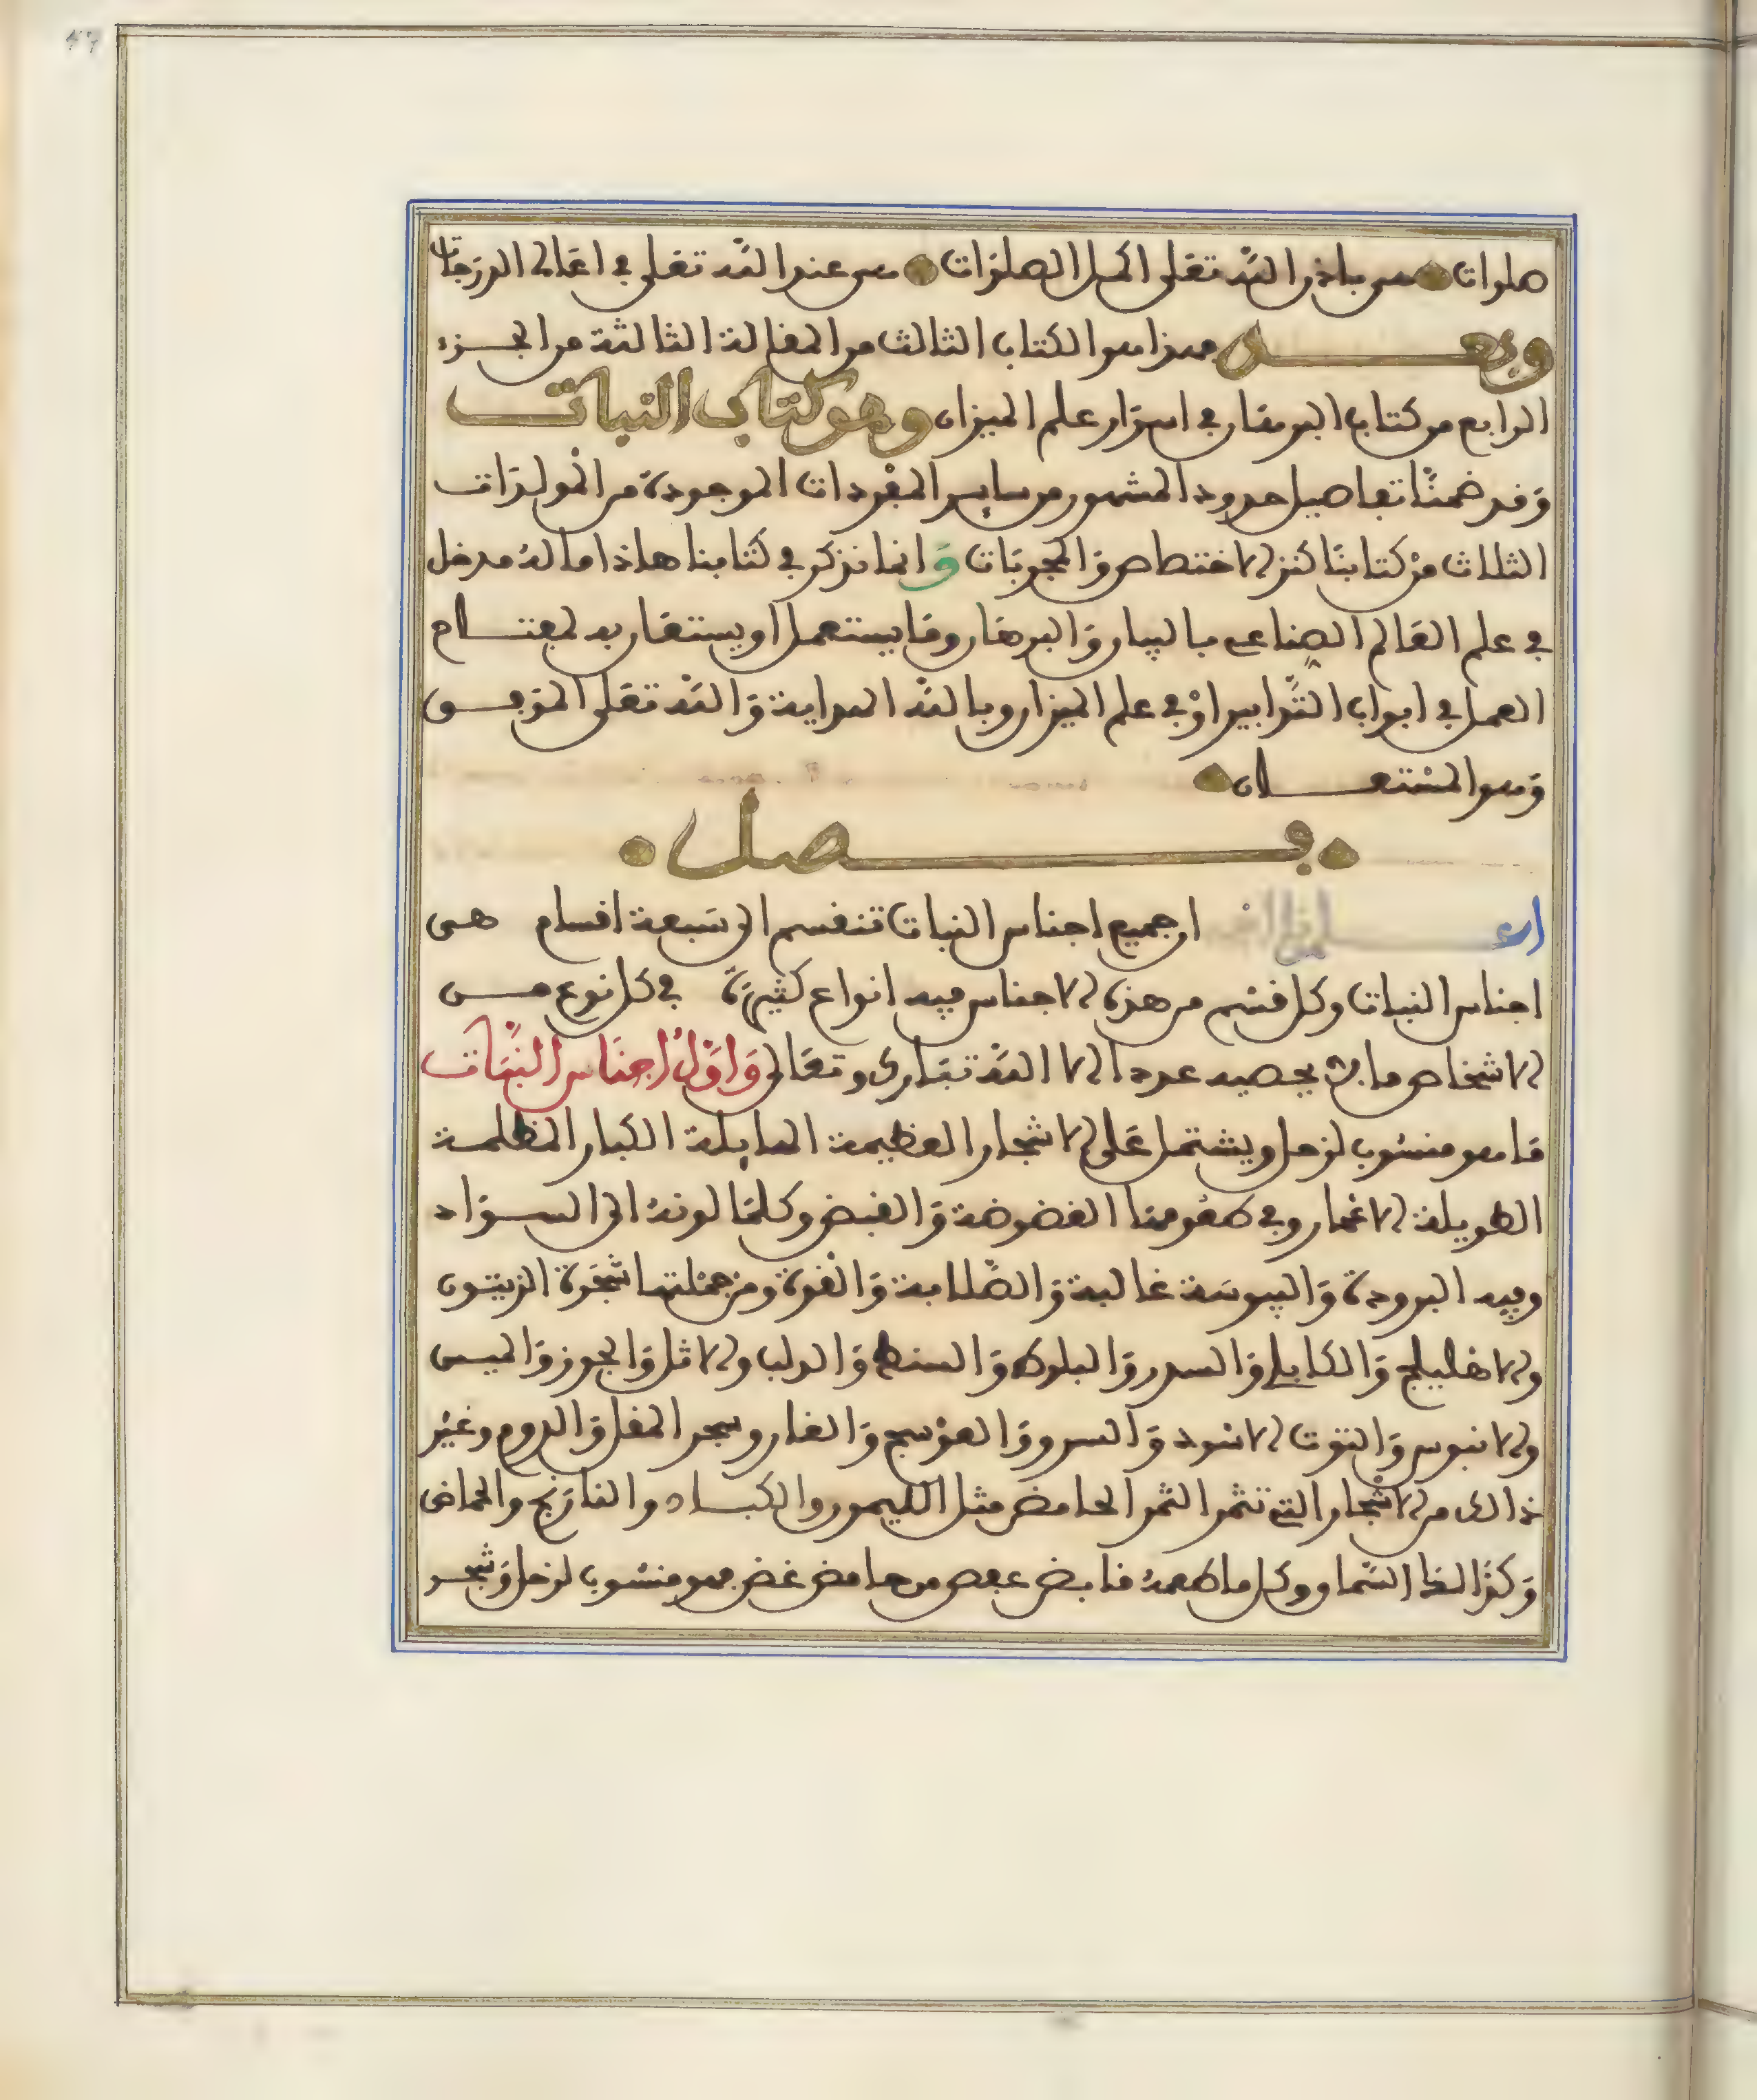 صلوات هى باذن الله تعلى اكمل الصلوات هى عند الله تعلى في اعالى الدرجات
وبعد فهذا هو الكتاب الثالث من المقالة الثالثة من الجزء
الرابع من كتاب البرهان في اسرار علم الميزان وهو كتاب النبات
وقد ضمنّا تفاصيل حدود المشهور من سايس المفردات الموجودة من المولدات
الثلاث من كتابنا كنز الاختصاص والمجربات وانما نذكر في كتابنا هاذا ما له مدخل
في علم العالم الصناعي بالبيان والبرهان وما يستعمل او يستعان به لمفتاح
العمل في ابواب التدابير او في علم الميزان وبالله الهداية والله تعلى الموفق
وهو المستعان
فصل
اعلم ان جميع اجناس النبات تنقسم الى سبعة اقسام هى
اجناس النبات وكل قسم من هذه الاجناس فيه انواع كثيرة في كل نوع من
الاشخاص ما لا يحصيه عددا الا الله تبارك وتعالى واول اجناس النبات
ما هو منسوب لزحل ويشتمل على الاشجار العظيمة الهايلة الكبار المظلمة
الطويلة الاعمار وفي طعومها الغضوضة والقبض وكلما لونه الى السواد
وفيه البرودة واليبوسة غالبة والصلابة والقوة ومن جملتها شجرة الزيتون
والاهليلج والكابلي والسدر والبلوط والسنط والدلب والاثل والجوز والميس
والابنوس والتوت الاسود والسرو والعوسج والغار وشجر المقل والدوم وغير
ذالك من الاشجار التي تثمر الثمر الحامض مثل الليمون والكباد والنارنج والحماض
وكذالك السماق وكل ما طعمه قابض عفص من حامض غض فهو منسوب لزحل وشجر